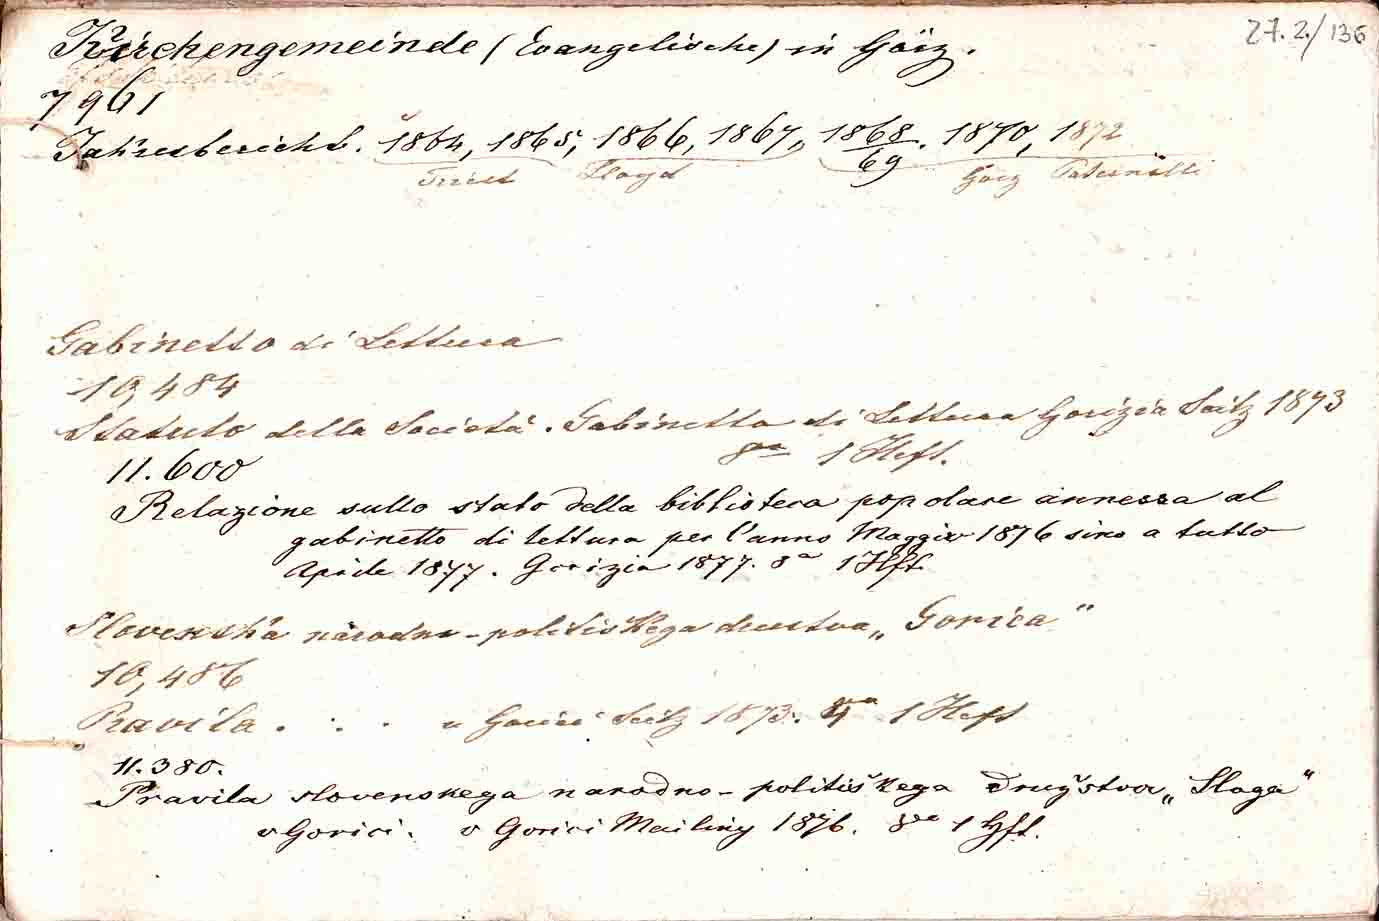 27.2./136
Kirchengemeinde (Evangelische) in Görz.
7961
Jahresbericht. 1864, 1865, 1866, 1867, 1868/69. 1870, 1872
Triest Lloyd Görz Paternolli
Gabinetto di Lettura
10,484
Statuto della Società. Gabinetto di Lettura Gorizia Seitz 1873
8° 1 Heft.
11.600
Relazione sullo stato della biblioteca popolare annessa al
gabinetto di lettura per l'anno Maggio 1876 sino a tutto
Aprile 1877. Gorizia 1877. 8° 1 Hft.
Slovenska národno-politiškega društva „Gorica"
10,486
Pravila . . . v Gorici Seitz 1873. 1 Heft
11.380.
Pravila slovenskega narodno-politiškega družstva „Sloga"
v Gorici. v Gorici Mailing 1876. 8° 1 Hft.